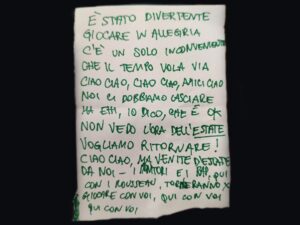 È STATO DIVERTENTE
GIOCARE IN ALLEGRIA
C'È UN SOLO INCONVENIENTE
CHE IL TEMPO VOLA VIA
CIAO CIAO, CIAO CIAO, AMICI CIAO
NOI CI DOBBIAMO LASCIARE
MA EHI, IO DICO, CHE È OK
NON VEDO L'ORA DELL'ESTATE
VOGLIAMO RITORNARE!
CIAO CIAO, MA VENITE D'ESTATE
DA NOI - I E I QUI
CON I ROUSSEAU, TORNERANNO X
GIOCARE CON VOI, QUI CON VOI
QUI CON VOI